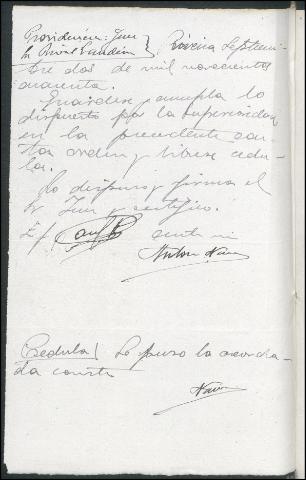 Providencia: Juez
Sr. Rival Landín } Riveira Septiem-
bre dos de mil novecientos
cuarenta.
Guárdese y cumpla lo
dispuesto por la superioridad
en la precedente car-
ta orden y líbrese cédu-
la.
Lo dispuso y firma el
Sr. Juez y certifico.
E/ ante mi
Antonio
Cedula/ Lo puso la acorda-
da consta